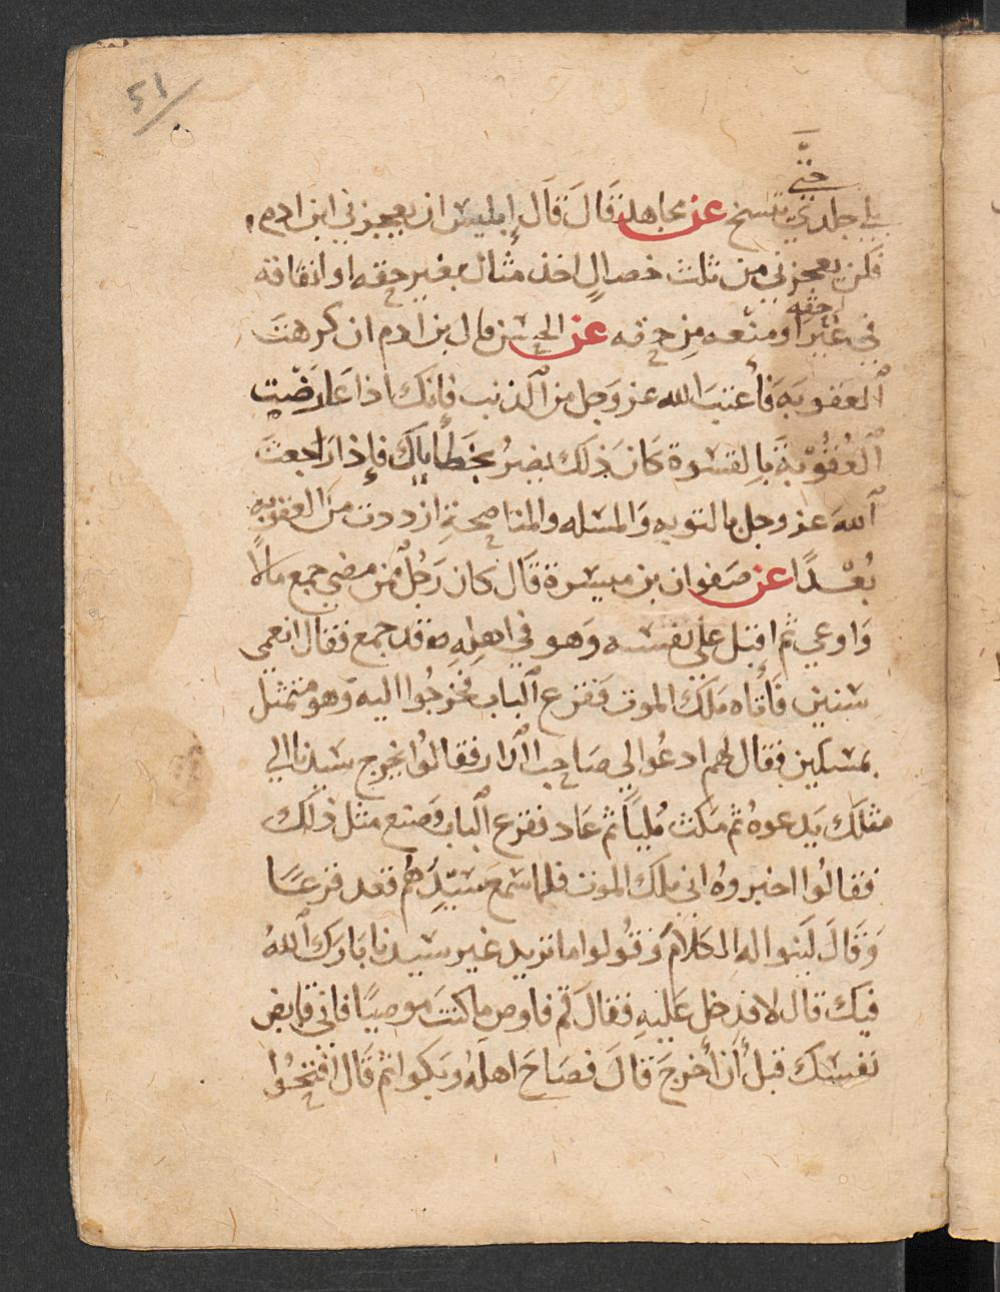 51
حتى
يلي جلدي ينسخ عن مجاهد قَالَ قَالَ إبليس ان يعجزني ابن ادم
فلن يعجزني من ثلث خصالٍ اخذ مال بغير حقه او انفاقه
حقه
في غير او منعه مِن حقه عن الحسن قال بن ادم ان كرهتَ
العَقوبَة فأعتب الله عز وَجل من الذنب فإنك اذا عَارَضْت
العُقُوْبةَ بِالقسوة كَانَ ذلك يضرُ بخَطَاياكَ فإذا رَاجعتَ
اللهَ عز وجل بالتوبه وَالمسله والمناصحةِ ازددت منَ العقوبه
بُعْدًا عن صَفوان بن ميسرة قَال كان رَجُلٌ من مضى جمع مالًا
وَاوعي ثم اقبل على نفسه وَهو في اهلِهِ قد جمع فقال انعمى
سنين فَأتاه مَلَك الموت فقرع الباب فخرجُوا اليه وَهو متمثل
بمسكين فقال لهم ادعُوا لي صَاحب الدار فقالُوا يخرج سَيدنا الي
مثلكَ يَدعوهُ ثم مَكثَ مُليًا ثم عَاد فقرع الباب وَصنع مثل ذلك
فقالُوا اخبروهُ اني مَلكَ الموت فلما سَمعَ سَيّدِهُم قعد فزعًا
وَقَالَ لَينوا له الكَلامَ وَقُولوا ما تريد غير سَيدنا بَارَكَ اللهُ
فيك قال لا فدخل عَليهِ فقالَ قم فاوص ما كنتَ موصيًا فاني قابض
نَفسَكَ قبل أن أخرجَ قالَ فَصَاحَ اهلهُ وَبَكوا ثم قَال افتحوا